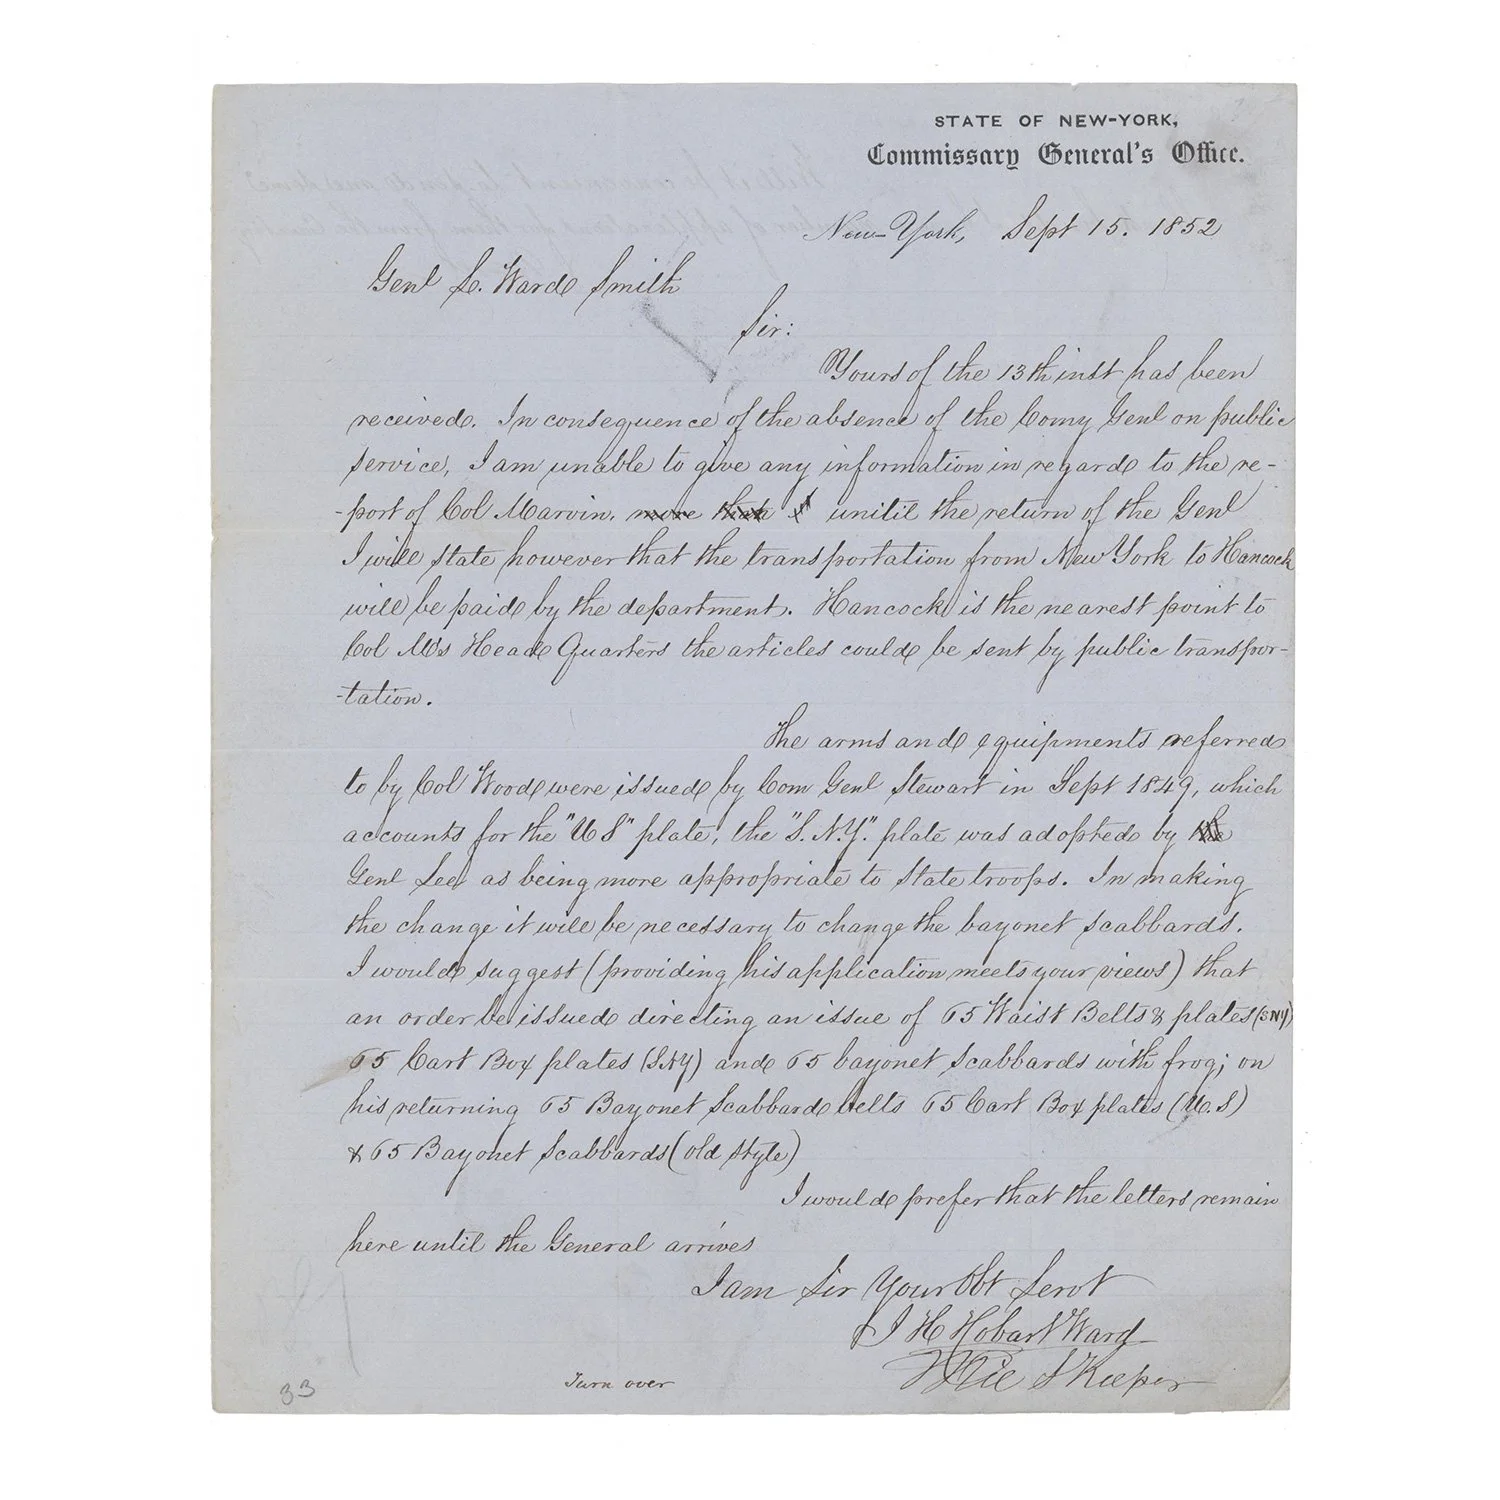 STATE OF NEW-YORK,
Commissary General's Office.
New-York, Sept 15. 1852
Genl L. Ward Smith
Sir:
Yours of the 13th inst has been
received. In consequence of the absence of the Comy Genl on public
service, I am unable to give any information in regard to the re-
-port of Col Marvin. more than unitil the return of the Genl
I will state however that the transportation from New York to Hancock
will be paid by the department. Hancock is the nearest point to
Col M's Head Quarters the articles could be sent by public transpor-
-tation.
The arms and equipments referred
to by Col Wood were issued by Com Genl Stewart in Sept 1849, which
accounts for the "U S" plate, the "S.N.Y." plate was adopted by the
Genl Lee as being more appropriate to State troops. In making
the change it will be necessary to change the bayonet scabbards.
I would suggest (providing his application meets your views) that
an order be issued directing an issue of 65 Waist Belts & plates (SNY)
65 Cart Box plates (SNY) and 65 bayonet scabbards with frog; on
his returning 65 Bayonet Scabbard belts 65 Cart Box plates (U.S)
& 65 Bayonet Scabbards (old style)
I would prefer that the letters remain
here until the General arrives
I am Sir Your Obt Servt
J H Hobart Ward
S Keeper
Turn over
33